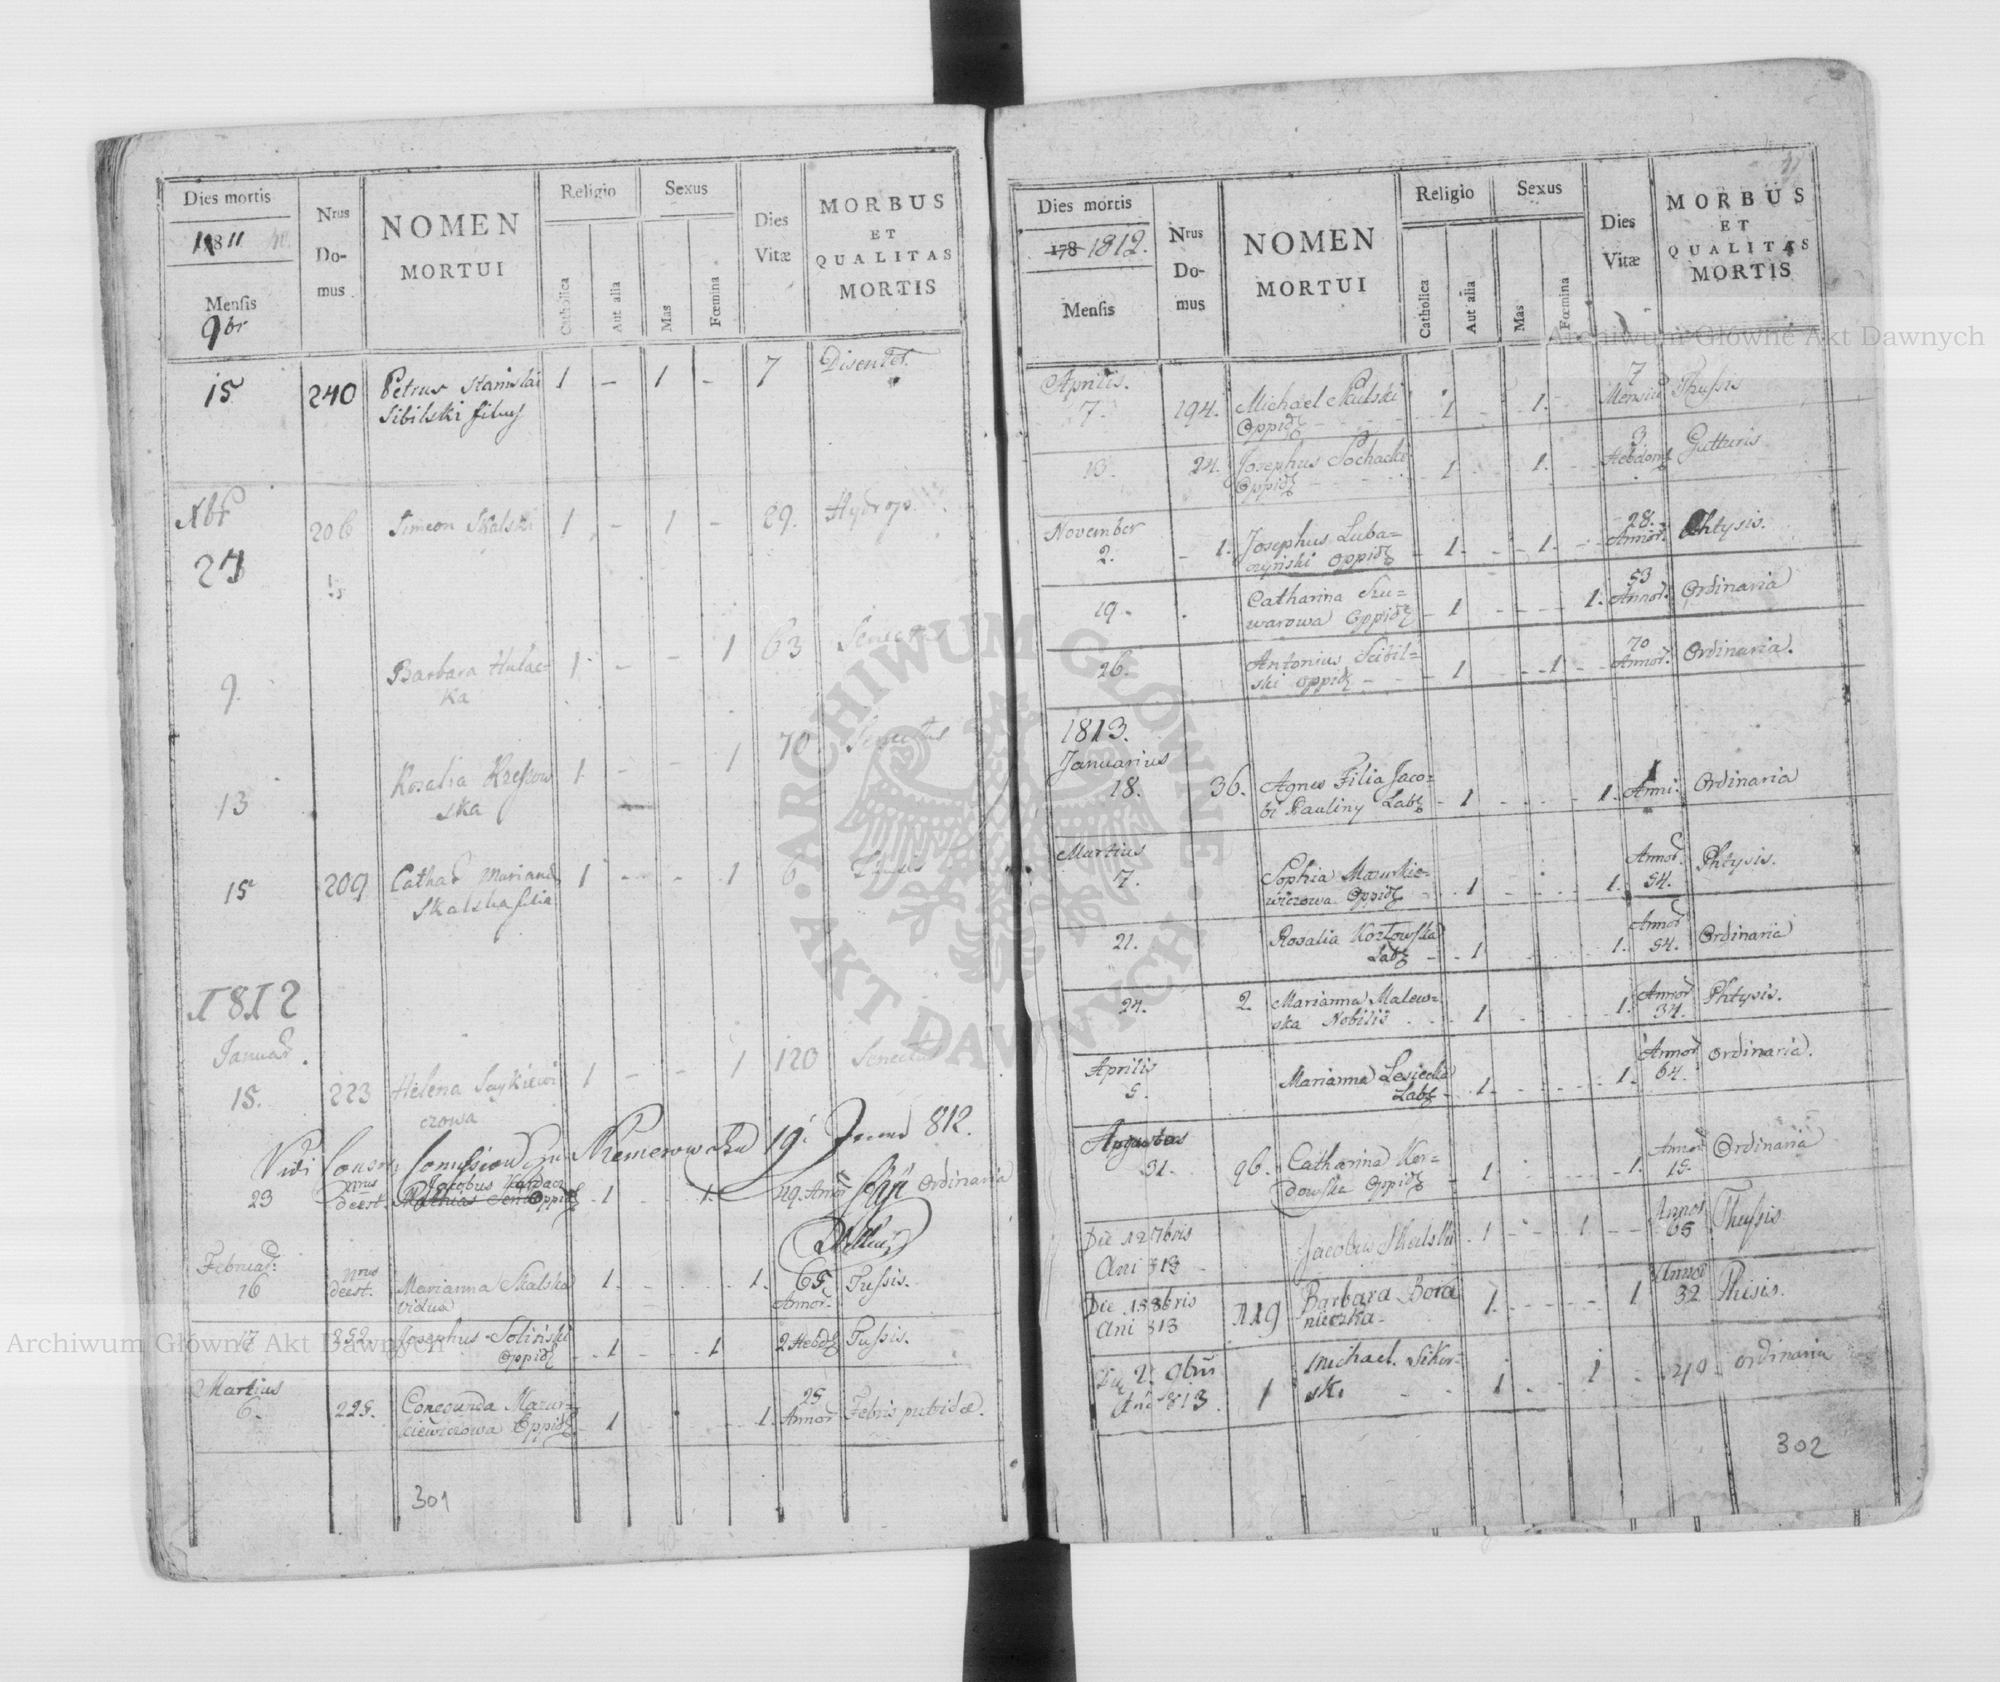 Dies mortis
1811
Mensis
9br
Nrus
Do-
mus
NOMEN
MORTUI
Religio
Catholica
Aut alia
Sexus
Mas
Fœmina
Dies
Vitæ
MORBUS
ET
QUALITAS
MORTIS
15 240 Petrus Stanislai 1 – 1 – 7 Disenter.
Sibilski filius
Xbr
27 206 Simeon Skalski 1 – 1 – 29. Hydrops
9. Barbara Hulac- 1 – – 1 63 Senectus
ka
13 Rosalia 1 – – 1 70 Senectus
ska
15 209 Cathar Marianna 1 – – 1 6
Skalska filia
1812
Januar.
15. 223 Helena 1 – – 1 120 Senectus
czowa
Vidi 19 Junii 812.
23 Nrus
deest. Jacobus Oppid 1 1. 49. Annor Ordinaria
Februar:
16 Nrus
deest. Marianna Skalska 1. 1. 65 Tussis.
vidua Annor.
17 252. Josephus Soliński 1 1 2 Hebd Tussis.
Oppid
Martius
6. 225. Conegunda Mazur- 1 1. 25
kiewiczowa Oppid Annor Febris putridæ.
301
Dies mortis
178 1812.
Mensis
Nrus
Do-
mus
NOMEN
MORTUI
Religio
Catholica
Aut alia
Sexus
Mas
Fœmina
Dies
Vitæ
MORBUS
ET
QUALITAS
MORTIS
Aprilis.
7. 194. Michael Skulski 1 1. 7 Thussis
Oppid
13. 24. Josephus Sochacki 1 1. 3 Gutturis
Oppid
November
2. 1. Josephus Luba- 1. 1. 28. Annor. Phtysis.
czyński Oppid
19. Catharina 1 1. 53 Annor. Ordinaria
warowa Oppid
26. Antonius Scibil- 1 1 70 Annor. Ordinaria.
ski Oppid
1813.
Januarius
18. 36. Agnes Filia Jaco- 1 1. 1 Anni. Ordinaria
bi Pauliny Lab
Martius
7. Sophia Mazurkie- 1 1. Annor. 54. Phtysis.
wiczowa Oppid
21. Rosalia Kozłowska 1 1. Annor 54. Ordinaria
Lab
24. 2. Marianna Malew- 1 1. Annor 34. Phtysis.
ska Nobilis
Aprilis
5. Marianna Lesiecka 1. 1. Annor 64. Ordinaria.
Lab
Augustus
31. 96. Catharina Kor- 1 1. Annor 15. Ordinaria
dowska Oppid
Die 12 7bris
Ani 813 Jacobus Skulski 1 1 Annor 65 Thussis
Die 15 8bris
Ani 813 119 Barbara Bora 1. 1 Annor 32 Thisis.
nieczka
Die 2. 9bris
Ani 813. 1 Michael Sikor- 1 1 40 Ordinaria
ski
302
Archiwum Główne Akt Dawnych
Archiwum Główne Akt Dawnych
ARCHIWUM GŁÓWNE AKT DAWNYCH